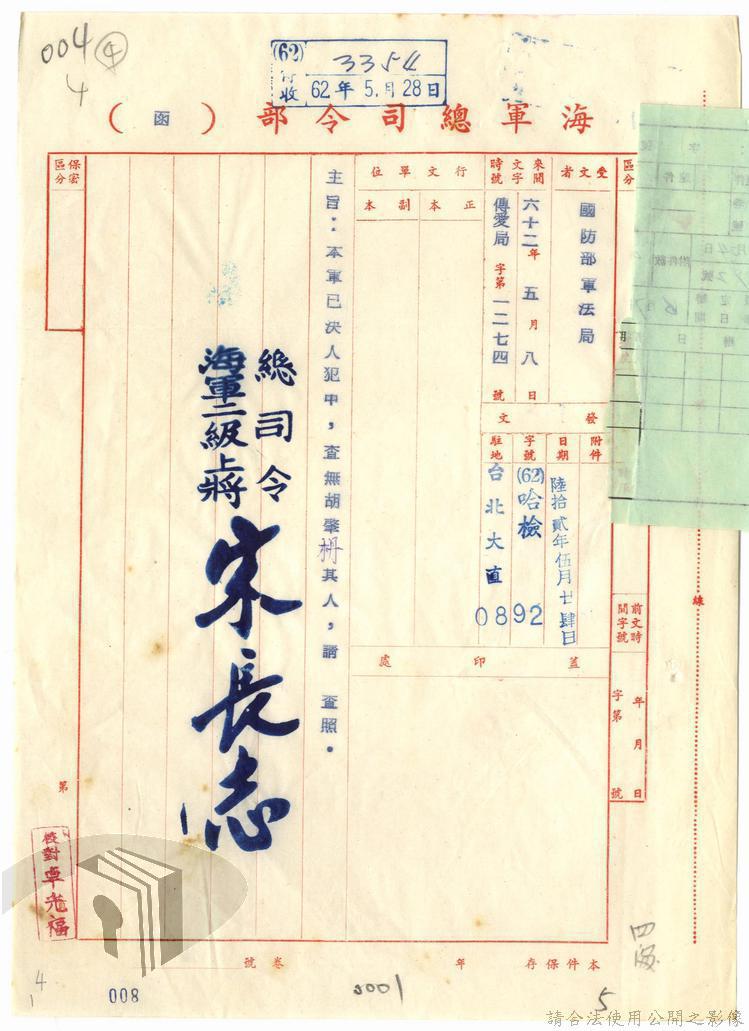 004 4
4
(62)
收
3354
62年5月28日
海軍總司令部(函)
區分
受文者
國防部軍法局
來文
時間
字號
六十二年五月八日
傳愛局字第一二七四號
行文單位
正本
副本
發文
附件
日期
陸拾貳年伍月廿肆日
字號
(62)哈檢
0892
駐地
台北大直
蓋印處
主旨：本軍已決人犯中，查無胡肇枏其人，請查照。
總司令
海軍二級上將
宋長志
保密區分
前文時間字號
年月日
字第號
線
第
校對卓光福
本件保存年
卷號
008
0001
5
4
1
請合法使用公開之影像